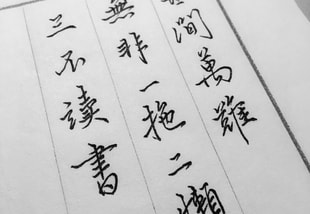 世間萬難
無非一拖二懶
三不读書